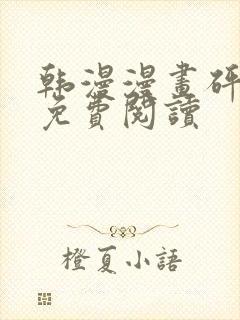 韩漫漫畫砰
免費閱讀
橙夏小語